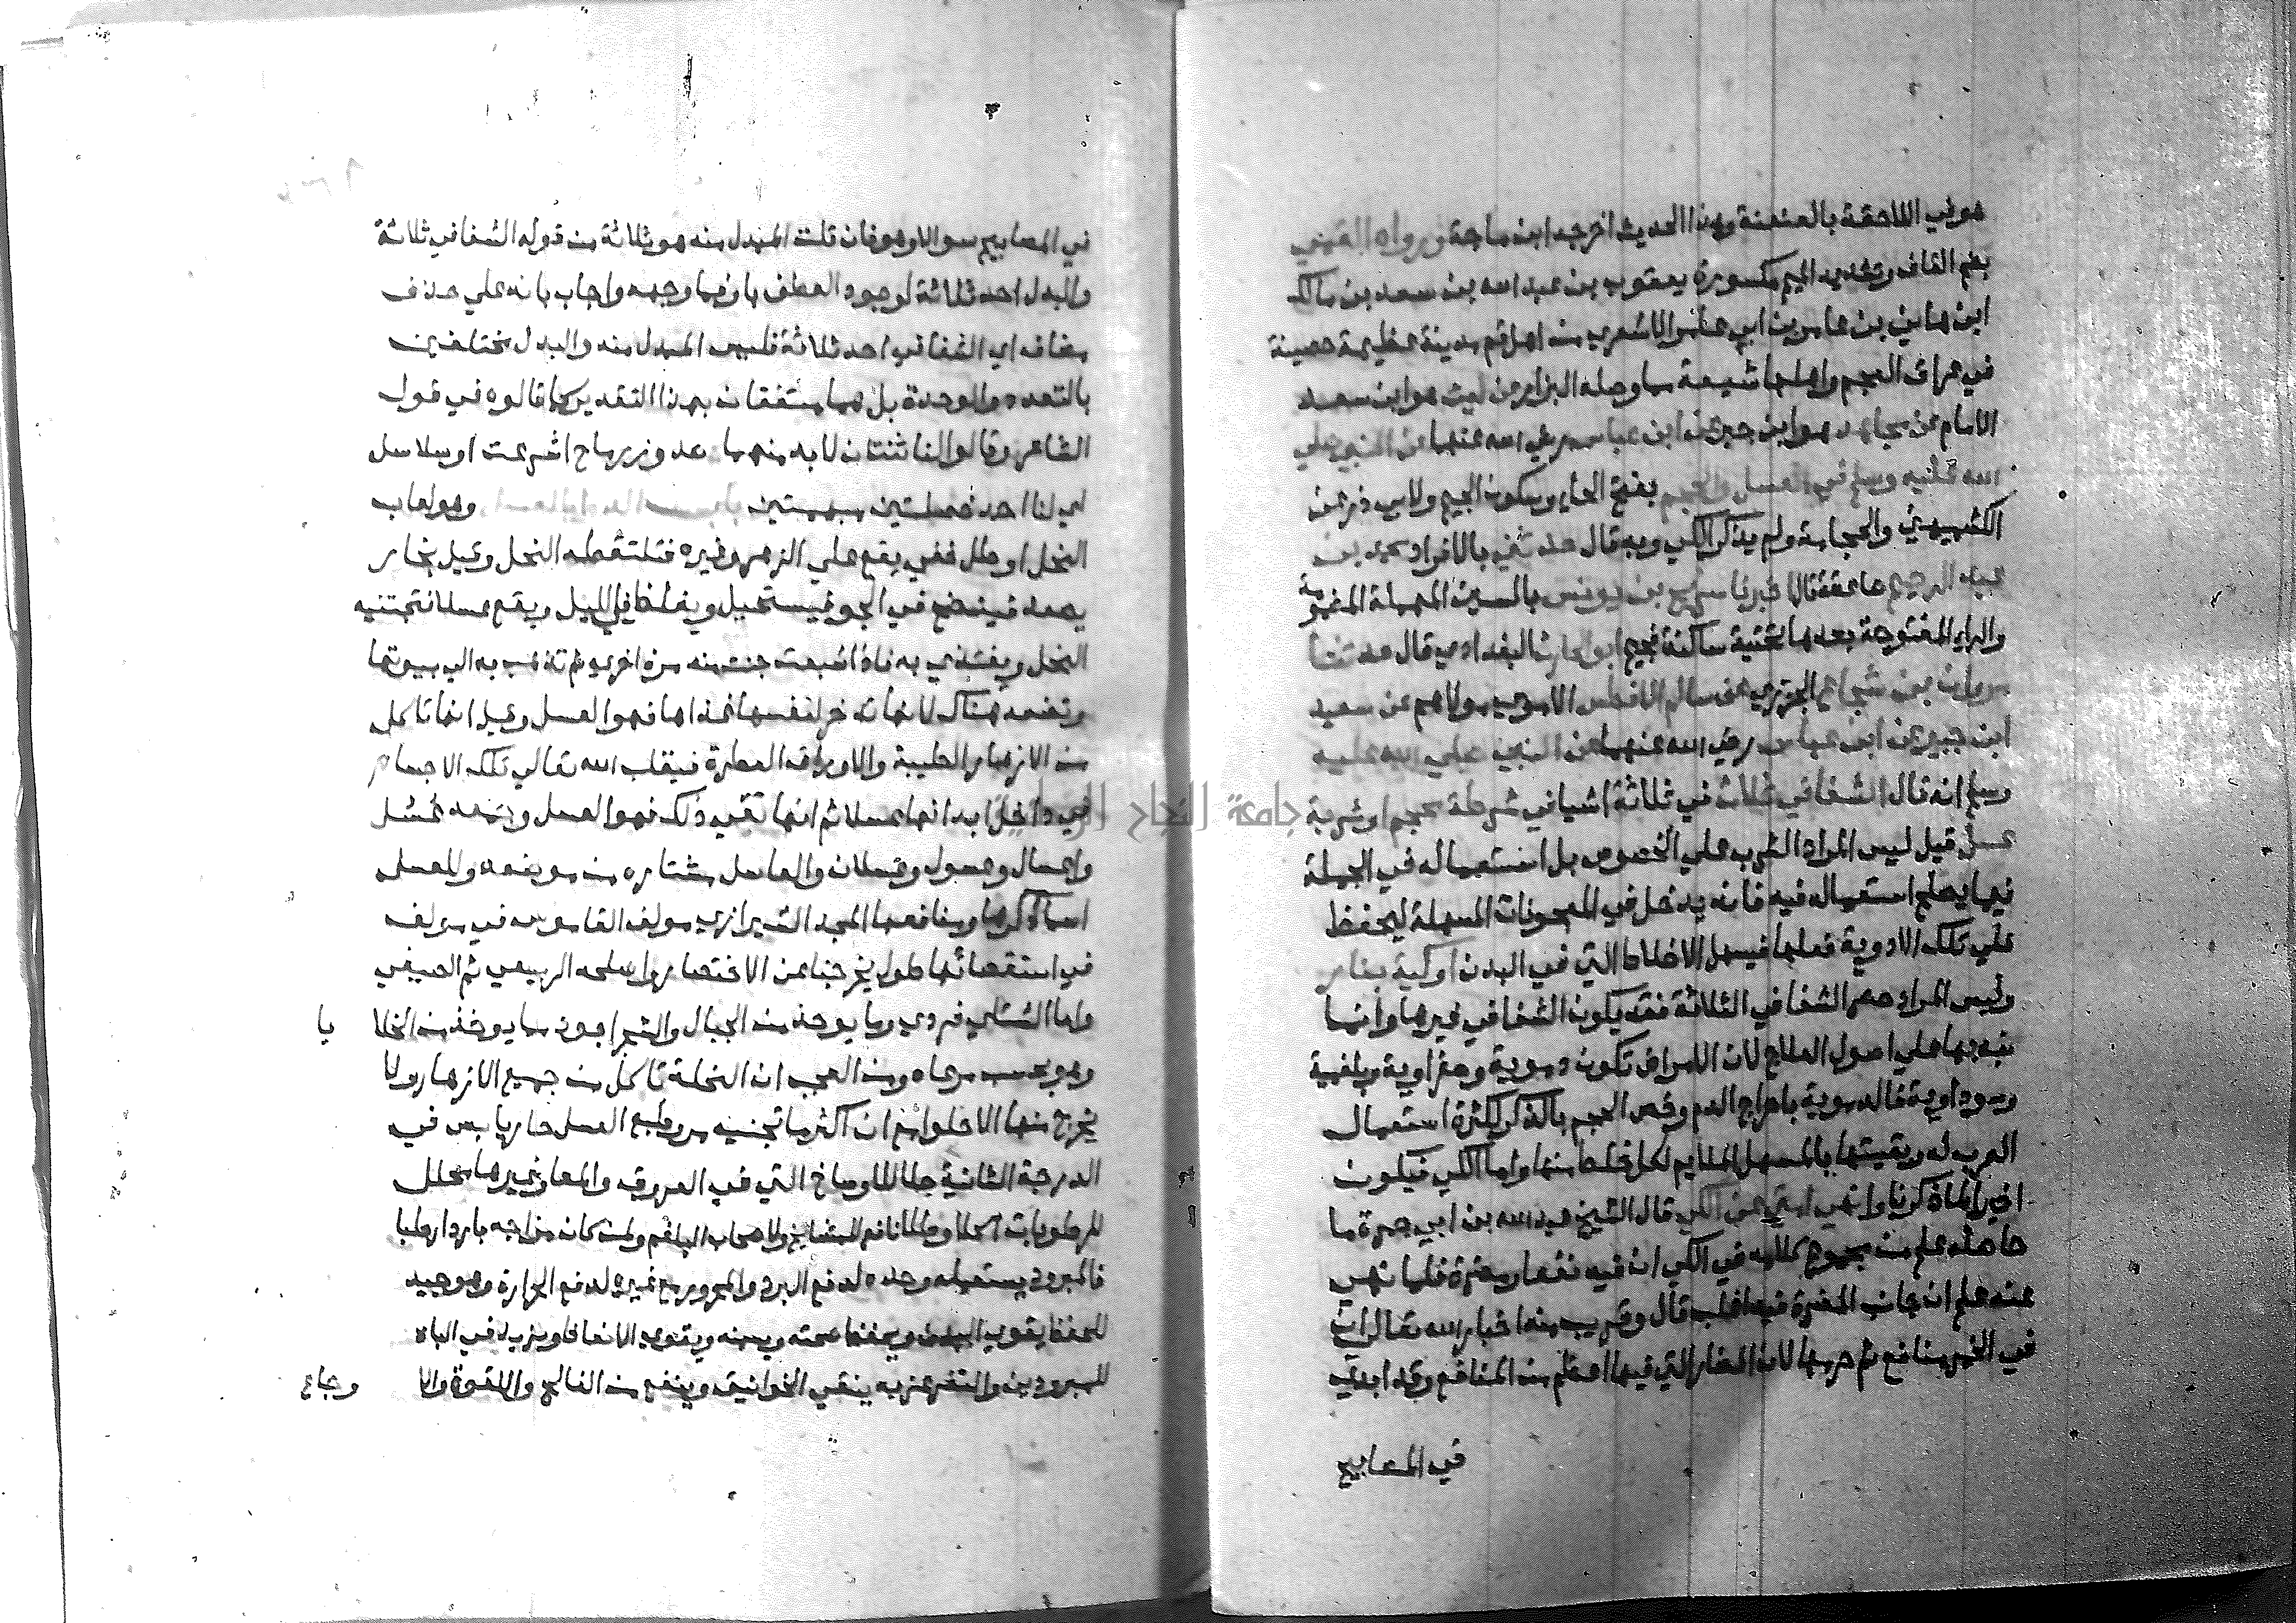 هو في اللاحقة بالعنعنة وهذا الحديث اخرجه ابن ماجة ورواه القمي
بضم القاف وتشديد الميم مكسورة يعقوب بن عبد الله بن سعد بن مالك
ابن هاني بن عامر بن ابي عامر الاشعري من اهل قم مدينة عظيمة حصينة
في عراق العجم واهلها شيعة مما وصله البزار عن ليث هو ابن سعد
الامام عن مجاهد هو ابن جبر عن ابن عباس رضي الله عنهما عن النبي صلي
الله عليه وسلم في العسل والحجم بفتح الحاء وسكون الجيم ولابي ذر عن
الكشميهني والحجامة ولم يذكر الكي وبه قال حدثني بالافراد محمد بن
عبد الرحيم صاعقة قال اخبرنا سريج بن يونس بالسين المهملة المضمومة
والراء المفتوحة بعدها تحتية ساكنة فجيم ابو الحارث البغدادي قال حدثنا
مروان بن شجاع الجزري عن سالم الافطس الاموي مولاهم عن سعيد
ابن جبير عن ابن عباس رضي الله عنهما عن النبي صلي الله عليه
وسلم انه قال الشفا في ثلاث في ثلاثة اشيا في شرطة محجم او شربة
عسل قيل ليس المراد الشرب علي الخصوص بل استعماله في الجملة
فيما يصلح استعماله فيه فانه يدخل في المعجونات المسهلة ليحفظ
علي تلك الادوية فعلها فيسهل الاخلاط التي في البدن او كية بنار
وليس المراد حصر الشفا في الثلاثة فقد يكون الشفا في غيرها وانما
نبه بها علي اصول العلاج لان الامراض تكون دموية وصفراوية وبلغمية
وسوداوية فالدموية باخراج الدم وخص الحجم بالذكر لكثرة استعمال
العرب له وبقيتها بالمسهل الملايم لكل خلط منها واما الكي فيكون
اخيرا لما ذكرنا وانهي امتي عن الكي قال الشيخ عبد الله بن ابي جمرة ما
حاصله علم من مجموع كلامه في الكي ان فيه نفعا ومضرة فلما نهي
عنه علم ان جانب المضرة فيه اغلب قال وقريب منه اخبار الله تعالي ان
في الخمر منافع ثم حرمها لان المضار التي فيها اعظم من المنافع وقد ابدي
في المصابيح
في المصابيح سوالا وهو فان قلت المبدل منه هو ثلاثة من قوله الشفا في ثلاثة
والبدل احد ثلاثة لوجود العطف باو فما وجهه واجاب بانه علي حذف
مضاف اي الشفا في احد ثلاثة فليس المبدل منه والبدل مختلفين
بالتعدد والوحدة بل هما متفقان بهذا التقدير كما قالوه في قول
الشاعر وقالوا لنا ثنتان لا بد منهما صدور رماح اشرعت او سلاسل
اي لنا احد خصلتين مبهمتين باب الدواء بالعسل وهو لعاب
النحل او طل خفي يقع علي الزهر وغيره فتلتقطه النحل وقيل بخار
يصعد فينضج في الجو فيستحيل ويغلظ في الليل ويقع عسلا فتجتنيه
النحل ويغتذي به فاذا شبعت جنت منه مرة اخري ثم تذهب به الي بيوتها
وتضعه هناك لانها تدخر لنفسها غذاها فهو العسل وقيل انها تاكل
من الازهار الطيبة والاوراق العطرة فيقلب الله تعالي تلك الاجسام
في داخل ابدانها عسلا ثم انها تقي ذلك فهو العسل وجمعه عسل
واعسال وعسول وعسلان والعاسل مشتاره من موضعه وللعسل
اسما ذكرها ومنافعها المجد الشيرازي مولف القاموس في مولف
في استقصائها طول يخرجنا عن الاختصار واصلحه الربيعي ثم الصيفي
واما الشتائي فردي وما يوخذ من الجبال والشجر اجود مما يوخذ من الخلايا
وهو بحسب مرعاه ومن العجب ان النحلة تاكل من جميع الازهار ولا
يخرج منها الا حلوا مع ان اكثر ما تجنيه مر وطبع العسل حار يابس في
الدرجة الثانية جلا للاوساخ التي في العروق والمعا وغيرها محلل
للرطوبات اكلا وطلا نافع للمشايخ ولاصحاب البلغم ولمن كان مزاجه باردا رطبا
فالمبرود يستعمله وحده لدفع البرد والمحرور مع غيره لدفع الحرارة وهو جيد
للحفظ يقوي البدن ويحفظ صحته ويسمنه ويقوي الانعاظ ويزيد في الباه
للمبرودين والتغرغر به ينقي الخوانيق وينفع من الفالج واللقوة والاوجاع
جامعة النجاح الوطنية